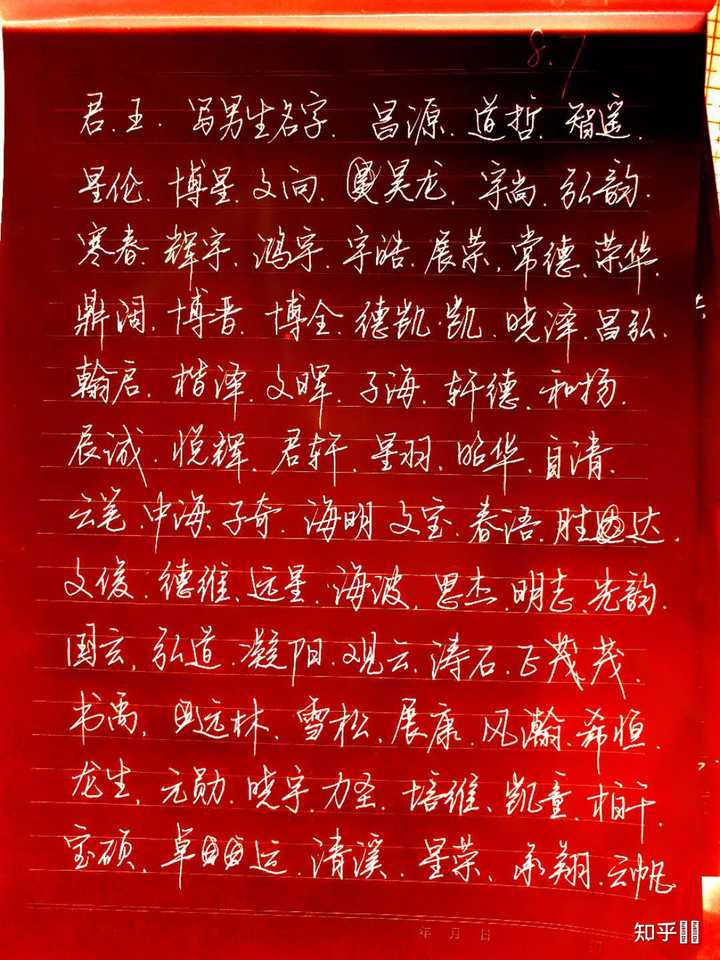 8.7
君.王.写男生名字.昌源.道哲.智遥.
星伦.博星.文向.昊龙.宇尚.弘韵.
寒春.辉宇.鸿宇.宇皓.展荣.常德.荣华.
鼎阔.博晋.博全.德凯.凯.晓泽.昌弘.
翰启.楷泽.文晖.子海.轩德.和扬.
辰诚.悦辉.君轩.星羽.昭华.自清.
云笔.中海.子奇.海明.文宝.春语.胜达.
文俊.德维.远星.海波.思杰.明志.先韵.
国云.弘道.凝阳.观云.涛石.正茂茂.
书禹.远林.雪松.展康.风瀚.希恒.
龙生.元勋.晓宇.力圣.培维.凯童.柏千.
宝硕.卓运.清溪.星荣.承翔.云帆
年 月 日
知乎